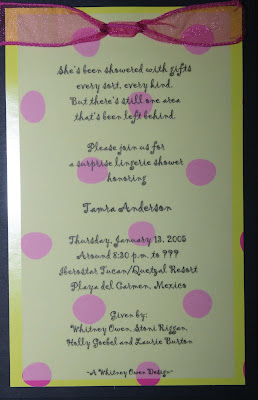 She's been showered with gifts
every sort, every kind.
But there's still one area
that's been left behind.
Please join us for
a surprise lingerie shower
honoring
Tamra Anderson
Thursday, January 13, 2005
Around 8:30 p.m. to ???
Iberostar Tucan/Quetzal Resort
Playa del Carmen, Mexico
Given by:
Whitney Owen, Stoni Riggan,
Holly Goebel and Laurie Burton
~A Whitney Owen Design~